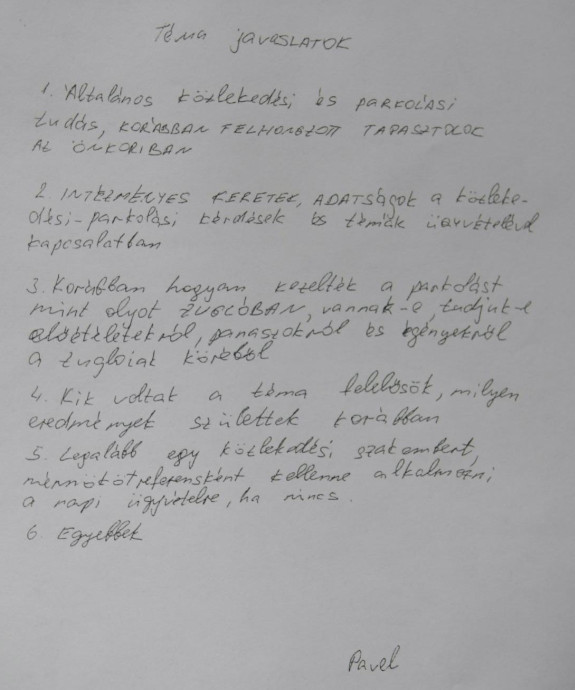 Téma javaslatok
1. Általános közlekedési és parkolási
tudás, KORÁBBAN FELHOMSZOTT TAPASZTOLOC
AZ ÖNKORIBAN
2. INTÉZMÉNYES KERETEK, ADATSÁGOK a közleke-
dési-parkolási kérdések és témák ügyvételével
kapcsalatban
3. Korábban hogyan kezelték a parkolást
mint olyot ZUGLÓBAN, vannak-e, tudjuk-e
előétéletekről, panaszokról és egényekről
a zugloiak köréből
4. Kik voltak a téma felelősök, milyen
eredmények születtek korábban
5. Legalább egy közlekedési szakembert,
mérnökötreferensként kellenne alkalmazni
a napi ügyvitelre, ha nincs.
6. Egyebbek
Pavel